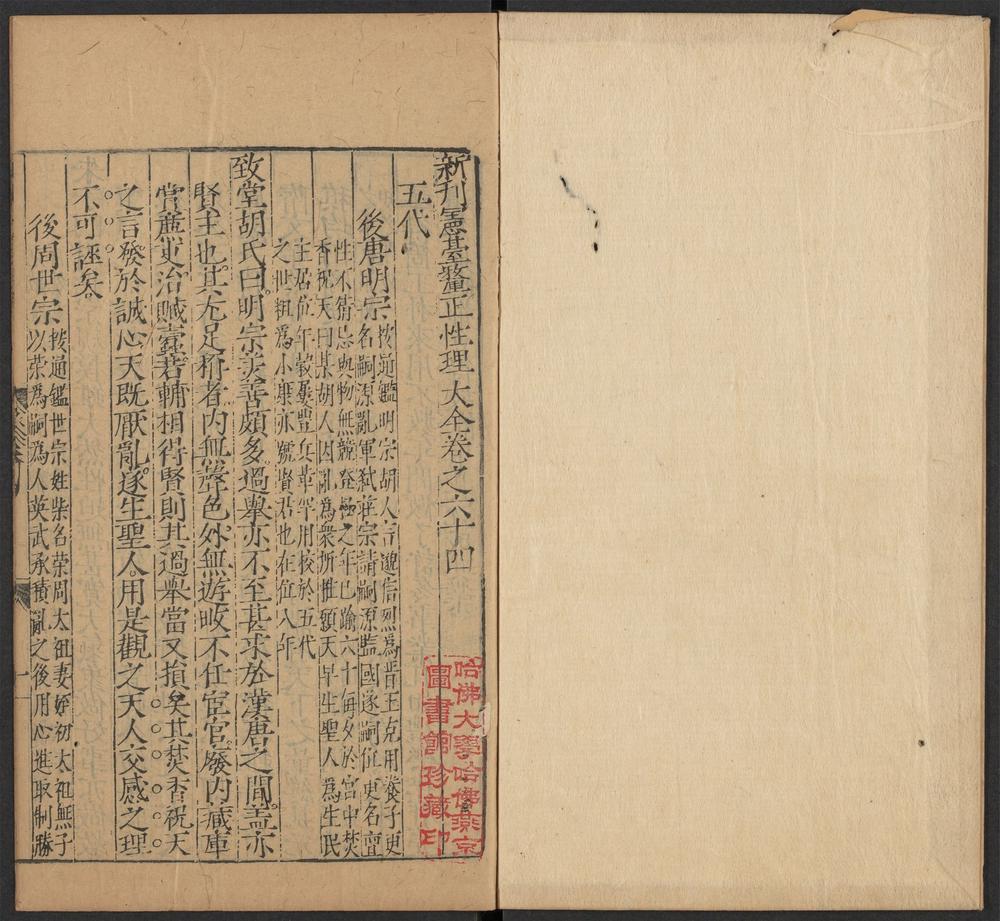 新刊憲臺釐正性理大全卷之六十四
五代
後唐明宗
按通鑑明宗胡人言邈佶烈爲晉王克用養子更
名嗣源亂軍弑莊宗請嗣源監國遂嗣位更名亶
性不猜忌與物無競登極之年已踰六十每夕於宮中焚
香祝天曰某胡人因亂爲衆所推願天早生聖人爲生民
主居位年穀屢豐兵革罕用校於五代
之世粗爲小康亦號賢君也在位八年
致堂胡氏曰明宗美善頗多過舉亦不至甚求於漢唐之間蓋亦
賢主也其尤足稱者内無聲色外無遊畋不任宦官廢内藏庫
賞廉吏治贓蠹若輔相得賢則其過舉當又損矣其焚香祝天
之言發於誠心天既厭亂遂生聖人用是觀之天人交感之理
不可誣矣
後周世宗
按通鑑世宗姓柴名榮周太祖妻姪初太祖無子
以榮爲嗣爲人英武承積亂之後用心進取制勝
一
哈佛大學哈佛燕京
圖書館珍藏印